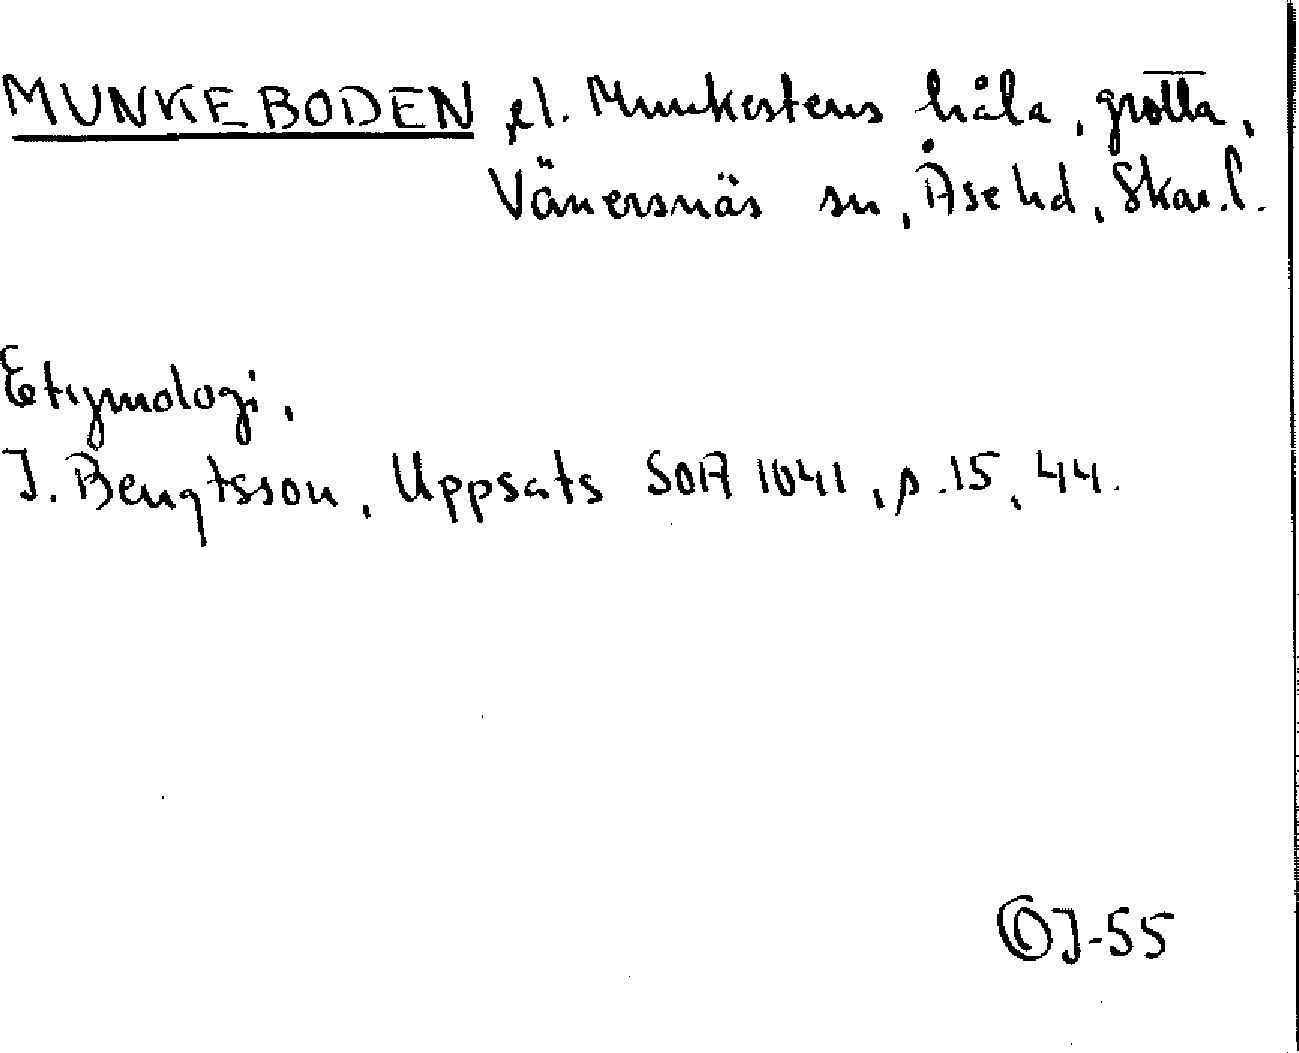 MUNKEBODEN el. Munkestens håla, grotta,
Vänersnäs sn, Åse hd, Skar.l.
Etymologi.
J. Bengtsson, Uppsats SOA 1041, p. 15, 44.
J-55